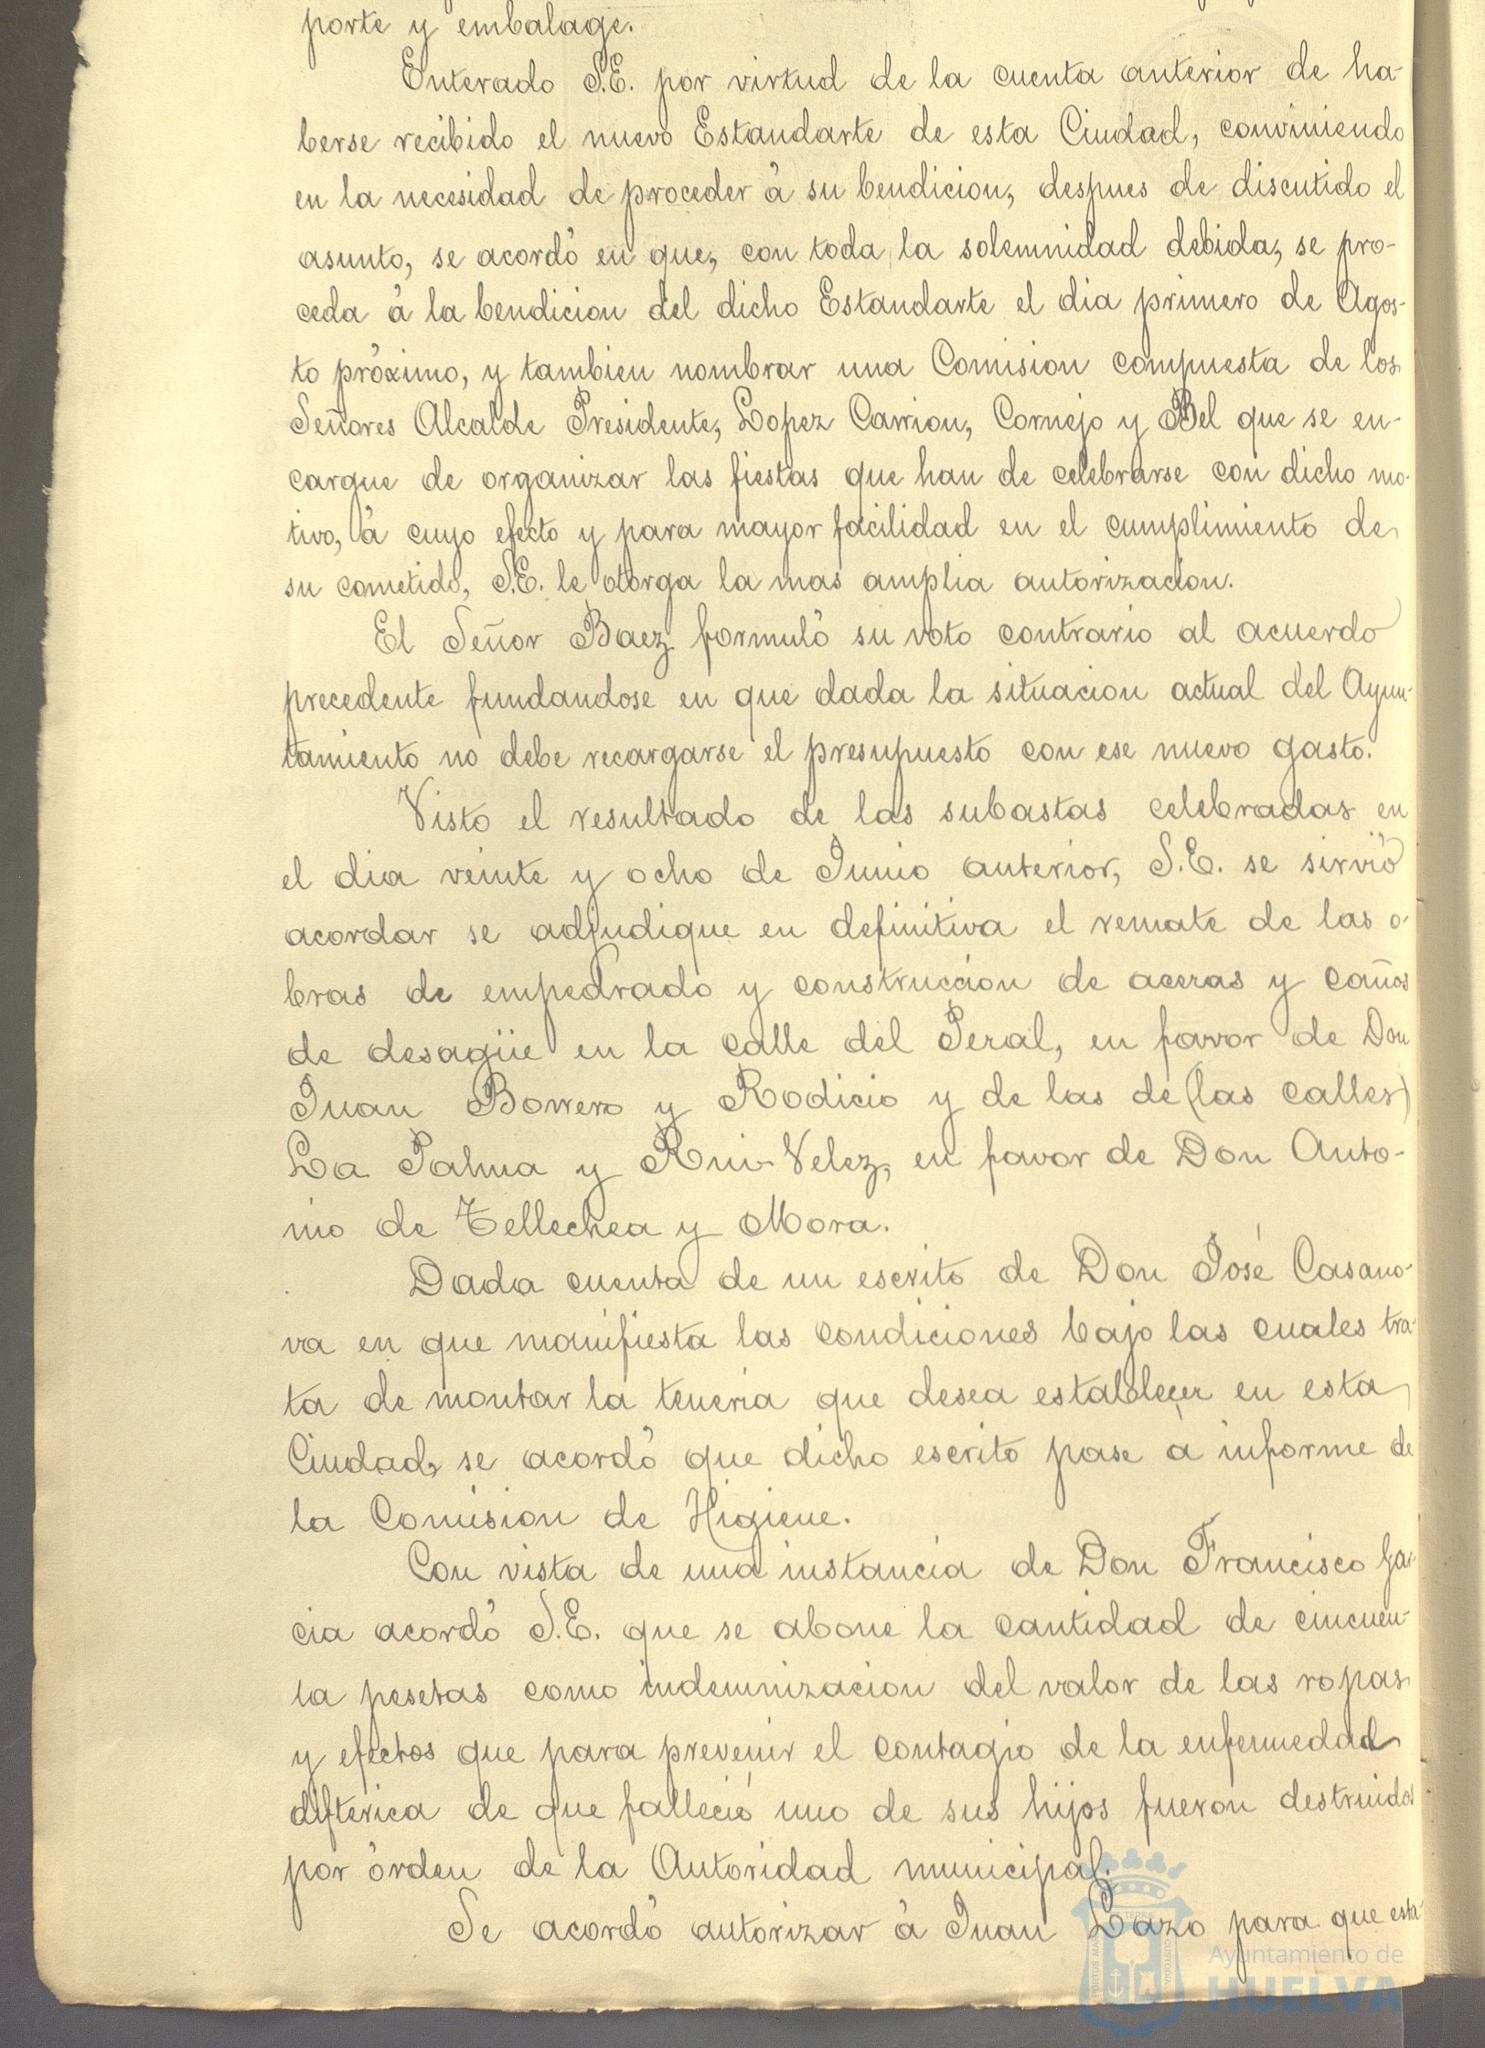 porte y embalage.
Enterado S.E. por virtud de la cuenta anterior de ha-
berse recibido el nuevo Estandarte de esta Ciudad, conviniendo
en la necesidad de proceder á su bendicion, despues de discutido el
asunto, se acordó en que, con toda la solemnidad debida, se pro-
ceda á la bendicion del dicho Estandarte el dia primero de Agos-
to próximo, y tambien nombrar una Comision compuesta de los
Señores Alcalde Presidente, Lopez Carrion, Cornejo y Bel que se en-
cargue de organizar las fiestas que han de celebrarse con dicho mo-
tivo, á cuyo efecto y para mayor facilidad en el cumplimiento de
su cometido, S.E. le otorga la mas amplia autorizacion.
El Señor Baez formuló su voto contrario al acuerdo
precedente fundandose en que dada la situacion actual del Ayun-
tamiento no debe recargarse el presupuesto con ese nuevo gasto.
Visto el resultado de las subastas celebradas en
el dia veinte y ocho de Junio anterior, S.E. se sirvió
acordar se adjudique en definitiva el remate de las o-
bras de empedrado y construccion de aceras y caños
de desagüe en la calle del Peral, en favor de Don
Juan Borrero y Rodicio y de las de (las calles)
La Palma y Rui-Velez, en favor de Don Anto-
nio de Tellechea y Mora.
Dada cuenta de un escrito de Don José Casano-
va en que manifiesta las condiciones bajo las cuales tra-
ta de montar la teneria que desea establecer en esta
Ciudad, se acordó que dicho escrito pase á informe de
la Comision de Higiene.
Con vista de una instancia de Don Francisco Gar-
cia acordó S.E. que se abone la cantidad de cincuen-
ta pesetas como indemnizacion del valor de las ropas
y efectos que para prevenir el contagio de la enfermedad
difterica de que falleció uno de sus hijos fueron destruidos
por órden de la Autoridad municipal.
Se acordó autorizar á Juan Lazo para que esta-
Ayuntamiento de
HUELVA